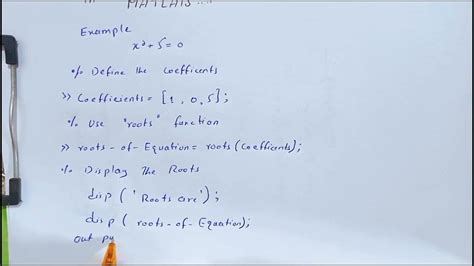 MATLAB
Example
x²+5=0
% Define the Coefficents
>> Coefficients = [1, 0, 5];
% Use "roots" function
>> roots-of-Equation = roots(Coefficents);
% Display The Roots
disp ('Roots are');
disp ( roots-of-Equation);
out py